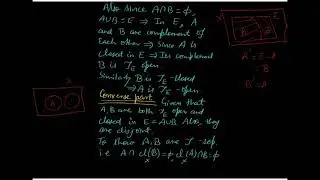 Also since A∩B=ϕ,
A∪B = E ⇒ In E, A
and B are complement of
Each other ⇒ Since A is
closed in E ⇒ Its complement
B is T_E open.
Similarly B is T_E-closed
⇒ A is T_E-open.
Converse part. Given that
A,B are both T_E open and
closed in E = A∪B. Also, they
are disjoint.
To show A,B are T-sep.
i.e A∩cl(B)=ϕ, cl(A)∩B=ϕ
X X
X
E
A' = E-A
= B
B' = A
X
A